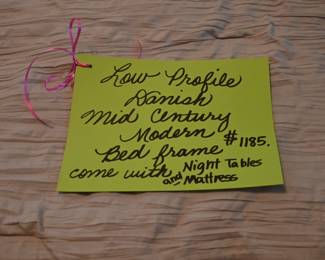 Low Profile
Danish
Mid Century
Modern
Bed frame #1185.
come with Night Tables
and Mattress